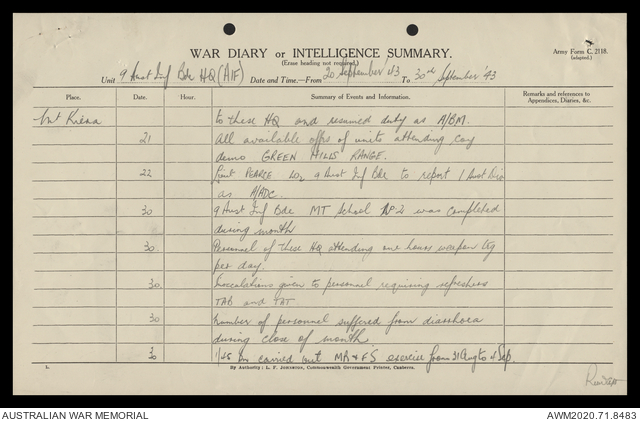 WAR DIARY or INTELLIGENCE SUMMARY.
(Erase heading not required.)
Army Form C. 2118.
(adapted.)
Unit 9 Aust Inf Bde HQ (AIF) Date and Time.—From 20 September '43 To 30th September '43
Place. Date. Hour. Summary of Events and Information. Remarks and references to Appendices, Diaries, &c.
Mt Keira to these HQ and resumed duty as A/BM.
21 All available offrs of units attending coy
demo GREEN HILLS RANGE.
22 Lieut PEARCE LO2 9 Aust Inf Bde to report 1 Aust Div
as A/ADC.
30 9 Aust Inf Bde MT School No 2 was completed
during month
30. Personnel of these HQ attending one hours weapon tg
per day.
30. Inoculations given to personnel requiring refreshers
TAB and TAT.
30 Number of personnel suffered from diarrhoea
during close of month
30 Bn carried out exercise from 31 Aug to Sep.
2. By Authority: L. F. JOHNSTON, Commonwealth Government Printer, Canberra.
AUSTRALIAN WAR MEMORIAL
AWM2020.71.8483